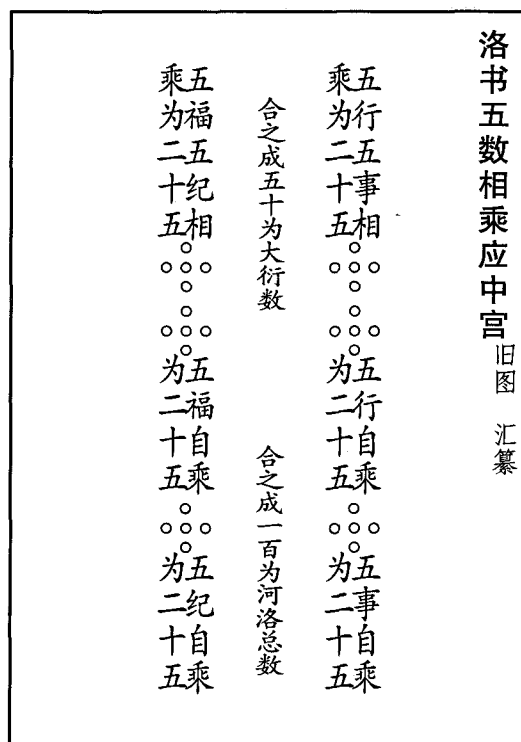 洛书五数相乘应中宫
旧图 汇纂
五行五事相
乘为二十五
五行自乘
为二十五
五事自乘
为二十五
合之成五十为大衍数
合之成一百为河洛总数
五福五纪相
乘为二十五
五福自乘
为二十五
五纪自乘
为二十五